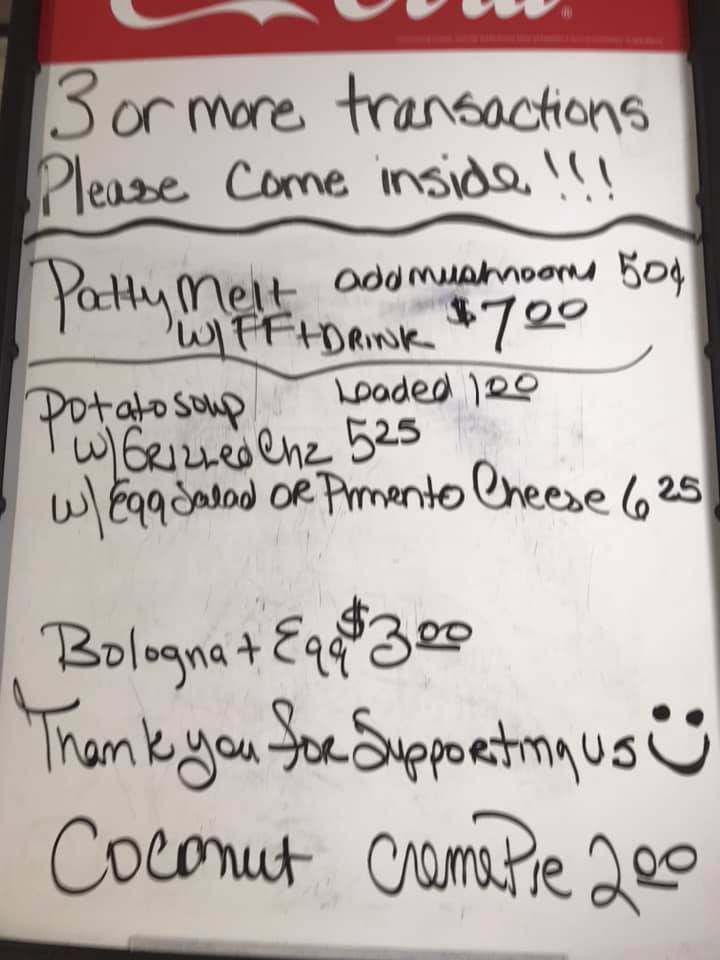 3 or more transactions
Please come inside!!!
Patty Melt add mushrooms 50¢
W/ FF + DRINK $7.00
Potato soup Loaded 1.00
W/ GRILLED Chz 5.25
W/ Egg Salad OR Pimento Cheese 6.25
Bologna + Egg $3.00
Thank you for Supporting us
Coconut Creme Pie 2.00